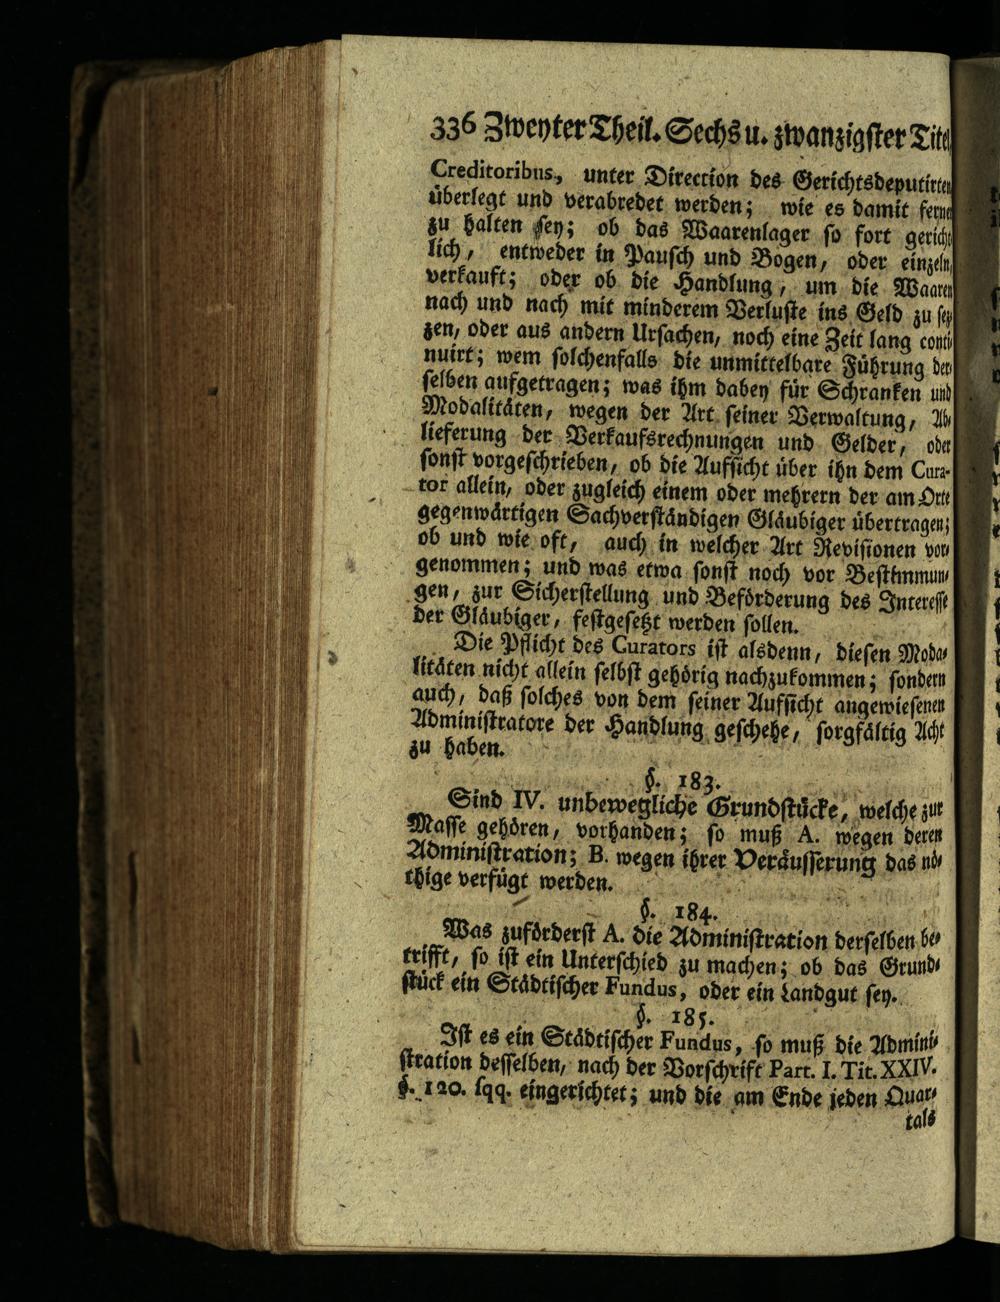 336 Zweyter Theil. Sechs u. zwanzigster Titel
Creditoribus, unter Direction des Gerichtsdeputirten
überlegt und verabredet werden; wie es damit ferner
zu halten sey; ob das Waarenlager so fort gericht-
lich, entweder in Pausch und Bogen, oder einzeln,
verkauft; oder ob die Handlung, um die Waaren
nach und nach mit minderem Verluste ins Geld zu set-
zen, oder aus andern Ursachen, noch eine Zeit lang conti-
nuirt; wem solchenfalls die unmittelbare Führung der-
selben aufgetragen; was ihm dabey für Schranken und
Modalitäten, wegen der Art seiner Verwaltung, Ab-
lieferung der Verkaufsrechnungen und Gelder, oder
sonst vorgeschrieben, ob die Aufsicht über ihn dem Cura-
tor allein, oder zugleich einem oder mehrern der am Orte
gegenwärtigen Sachverständigen Gläubiger übertragen;
ob und wie oft, auch in welcher Art Revisionen vor-
genommen; und was etwa sonst noch vor Bestimmun-
gen, zur Sicherstellung und Beförderung des Interesse
der Gläubiger, festgesetzt werden sollen.
Die Pflicht des Curators ist alsdenn, diesen Moda-
litäten nicht allein selbst gehörig nachzukommen; sondern
auch, daß solches von dem seiner Aufsicht angewiesenen
Administratore der Handlung geschehe, sorgfältig Acht
zu haben.
§. 183.
Sind IV. unbewegliche Grundstücke, welche zur
Masse gehören, vorhanden; so muß A. wegen deren
Administration; B. wegen ihrer Veräusserung das nö-
thige verfügt werden.
§. 184.
Was zuförderst A. die Administration derselben be-
trifft, so ist ein Unterschied zu machen; ob das Grund-
stück ein Städtischer Fundus, oder ein Landgut sey.
§. 185.
Ist es ein Städtischer Fundus, so muß die Admini-
stration desselben, nach der Vorschrift Part. I. Tit. XXIV.
§. 120. sqq. eingerichtet; und die am Ende jeden Quar-
tals